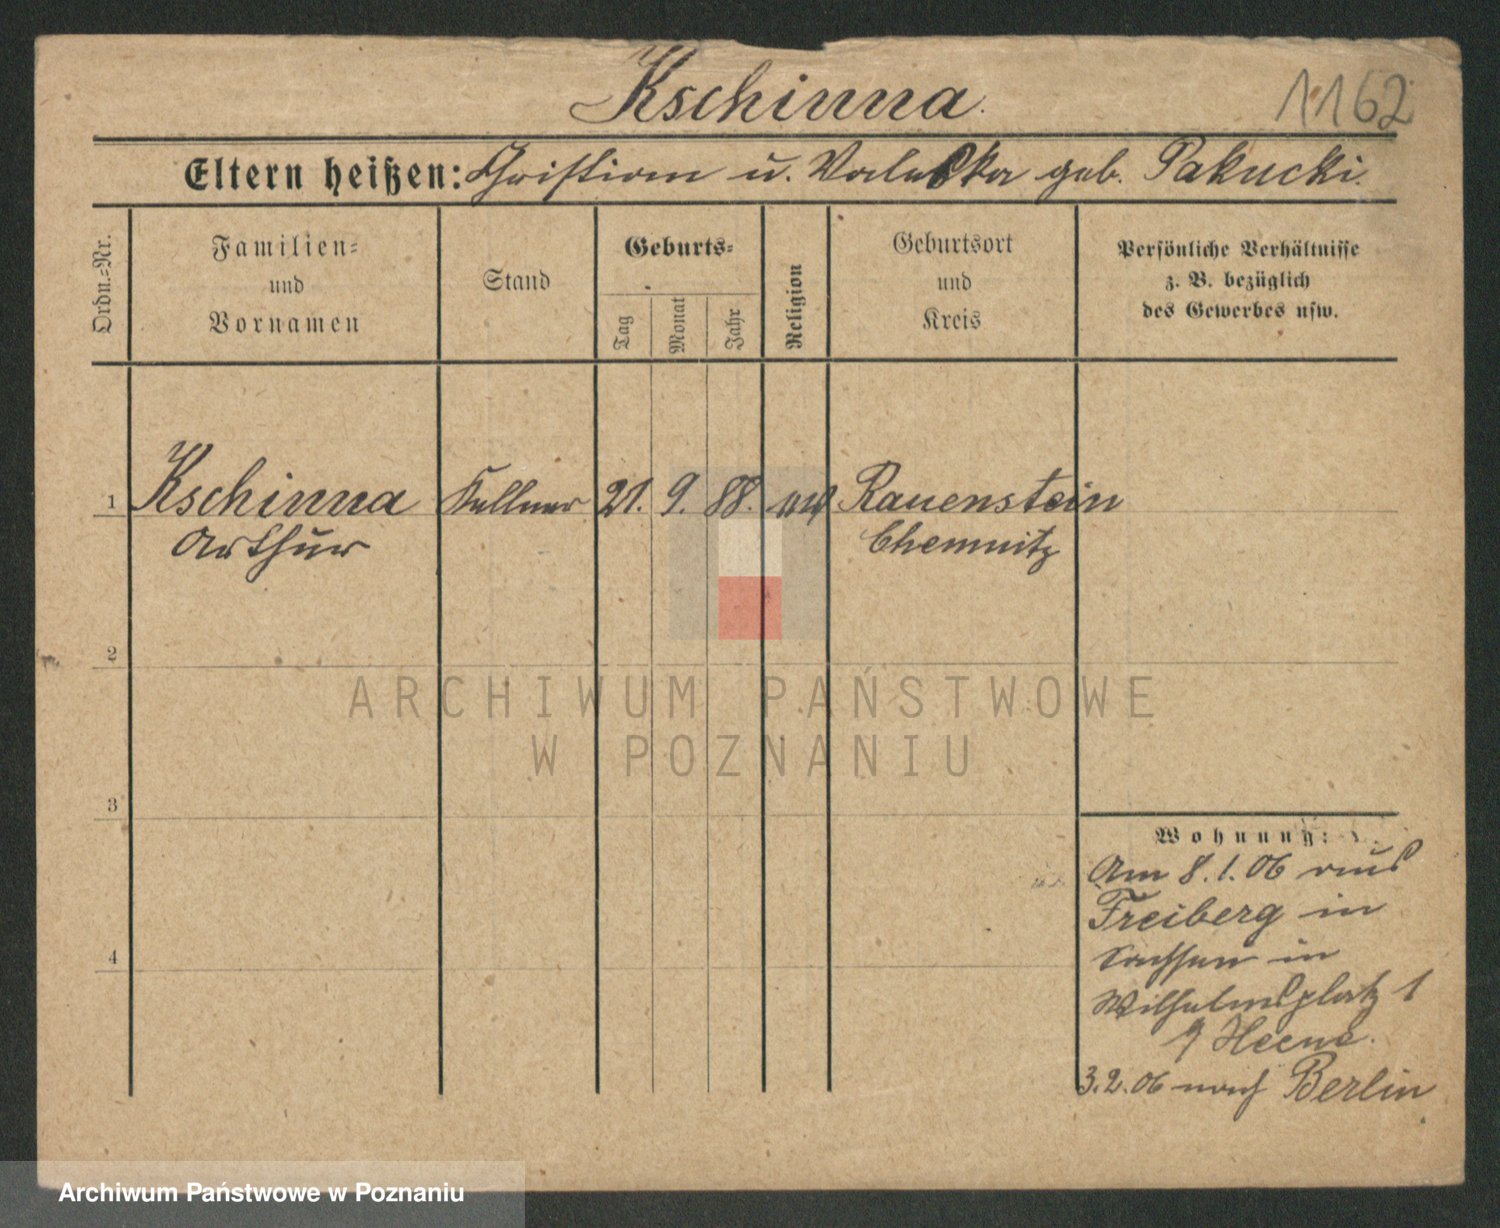 Kschinna.
1162
Eltern heißen: Christian u. Valeska geb. Pakucki.
Ordn.-Nr.
Familien-
und
Vornamen
Stand
Geburts-
Tag
Monat
Jahr
Religion
Geburtsort
und
Kreis
Persönliche Verhältnisse
z. B. bezüglich
des Gewerbes usw.
1 Kschinna Kellner 21. 9. 88. Rauenstein
Arthur Chemnitz
2
ARCHIWUM PAŃSTWOWE
W POZNANIU
3
Wohnung:
Am 8.1.06 aus
Freiberg in
Sachsen in
4
Wilhelmsplatz 1
Heene.
3.2.06 nach Berlin
Archiwum Państwowe w Poznaniu